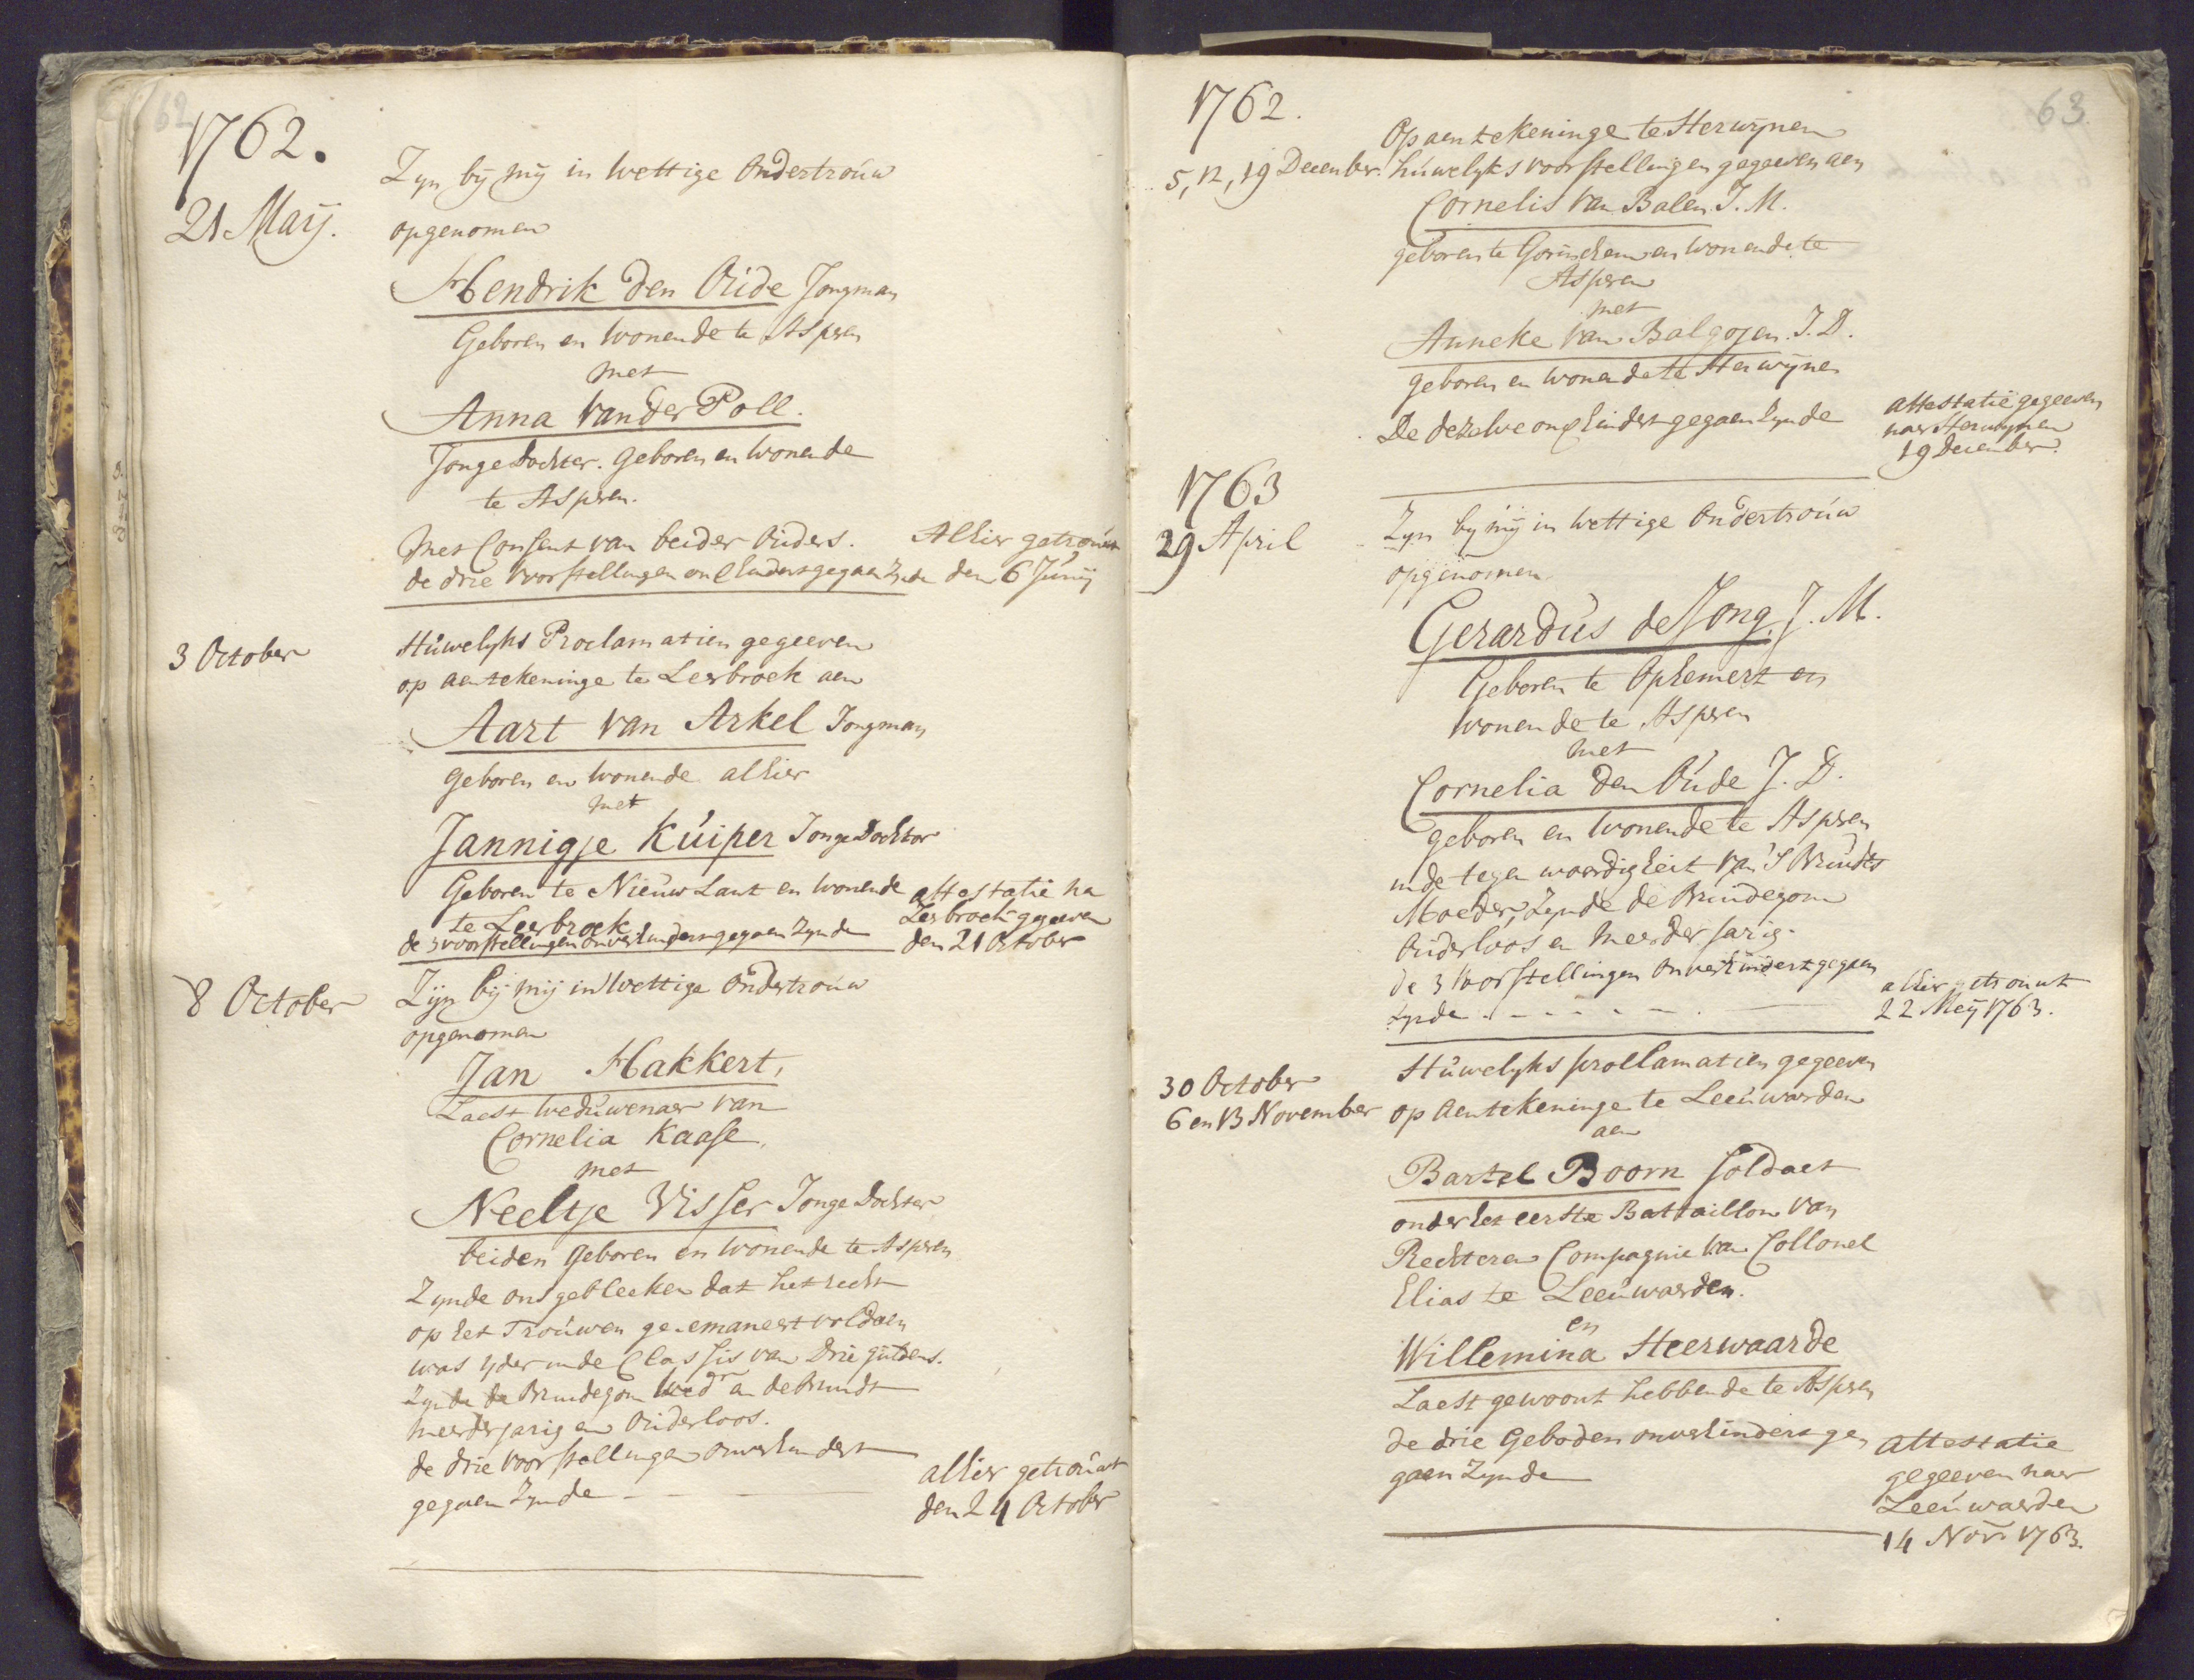 62
1762.
21 Maij.
Zyn bij mij in wettige Ondertrouw
opgenomen
Hendrik den Oude Jongman
Geboren en wonende te Aspren
met
Anna van der Poll.
Jonge Dochter. Geboren en wonende
te Aspren.
met Consent van beider Ouders.
de drie voorstellingen onverhindert gegaen Zynde
Alhier getrouwt
den 6 Junij
3 October
Huwelyks Proclamatien gegeeven
op aentekeninge te Leerbroek aen
Aart van Arkel Jongman
geboren en wonende alhier
met
Jannigje Kuiper Jonge Dochter
Geboren te Nieuw Lant en wonende
te Leerbroek
de 3 voorstellingen onverhindert gegaen Zynde
attestatie na
Leerbroek gegeeven
den 21 October
8 October
Zijn bij mij in Wettige Ondertrouw
opgenomen
Jan Hakkert,
Laest weduwenaer van
Cornelia Kaase,
met
Neeltje Visser Jonge Dochter
beiden geboren en wonende te Aspren
Zynde ons gebleeken dat het recht
op het Trouwen geëmaneert voldaen
was yder in de Classis van Drie guldens.
Zynde de Bruidegom Wedr en de Bruidt
meerderjarig en Ouderloos.
de drie voorstellingen onverhindert
gegaen Zynde
alhier getrouwt
den 24 October
63.
1762.
5, 12, 19 December.
Op aentekeninge te Herwijnen
huwelyks voorstellingen gegeeven aen
Cornelis van Balen J. M.
geboren te Gorinchem en wonende te
Aspren
met
Anneke van Balgojen. J. D.
geboren en wonende te Herwijnen
De dezelve onverhindert gegaen Zynde
attestatie gegeeven
naer Herwynen
19 December.
1763
29 April
Zyn bij mij in wettige Ondertrouw
opgenomen
Gerardus de Jong, J. M.
Geboren te Ophemert en
wonende te Aspren
met
Cornelia den Oude J. D.
geboren en wonende te Aspren
in de tegenwoordigheit van 's Bruidts
Moeder, Zynde de Bruidegom
Ouderloos en meerderjarig.
de 3 voorstellingen onverhindert gegaen
Zynde
alhier getrouwt
22 Meij 1763.
30 October
6 en 13 November
Huwelyks proclamatien gegeeven
op aentekeninge te Leeuwarden
aen
Bartel Boorn Soldaet
onder het eerste Battaillon van
Rechteren Compagnie van Collonel
Elias te Leeuwarden.
en
Willemina Heerwaarde
Laest gewoont hebbende te Aspren
de drie Geboden onverhindert ge
gaen Zynde
attestatie
gegeeven naer
Leeuwaerden
14 Nov. 1763.